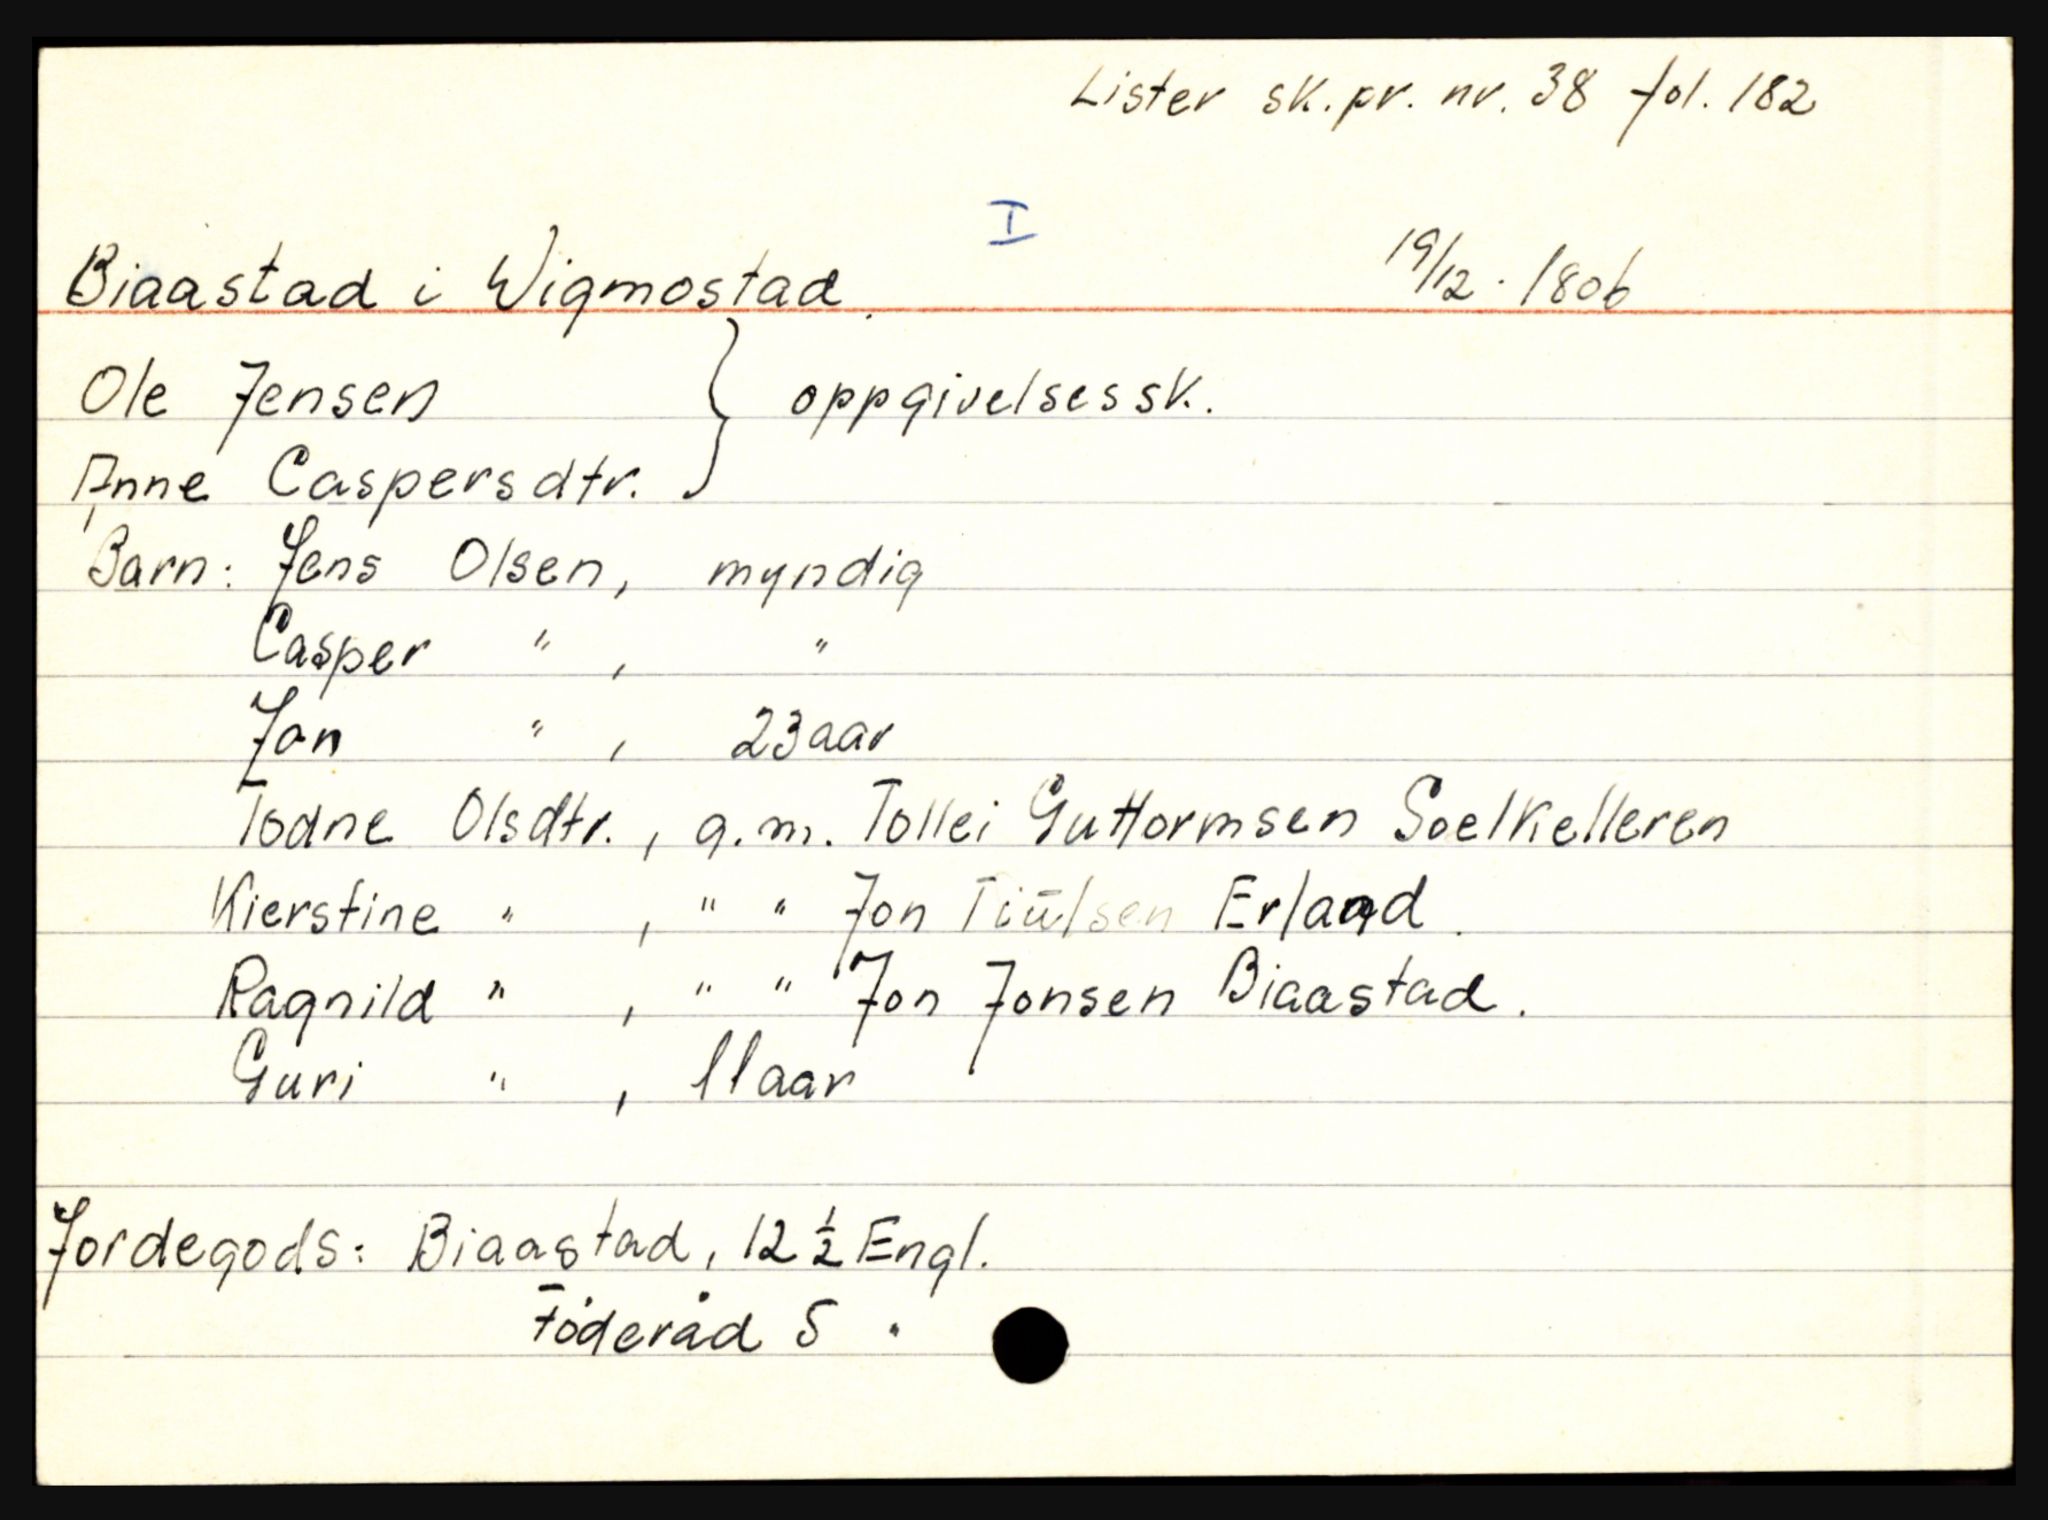 Lister sk.pr. nr. 38 fol. 182
I
Biaastad i Wigmostad. 19/12. 1806
Ole Jensen } oppgivelsessk.
Anne Caspersdtr.
Barn: Jens Olsen, myndig
Casper " , "
Jon " , 23 aar
Todne Olsdtr., g.m. Tollei Guttormsen Soelkelleren
Kierstine " , " " Jon Tiülsen Erland.
Ragnild " , " " Jon Jonsen Biaastad.
Guri " , 11 aar
Jordegods: Biaastad, 12 ½ Engl.
Föderåd 5 "